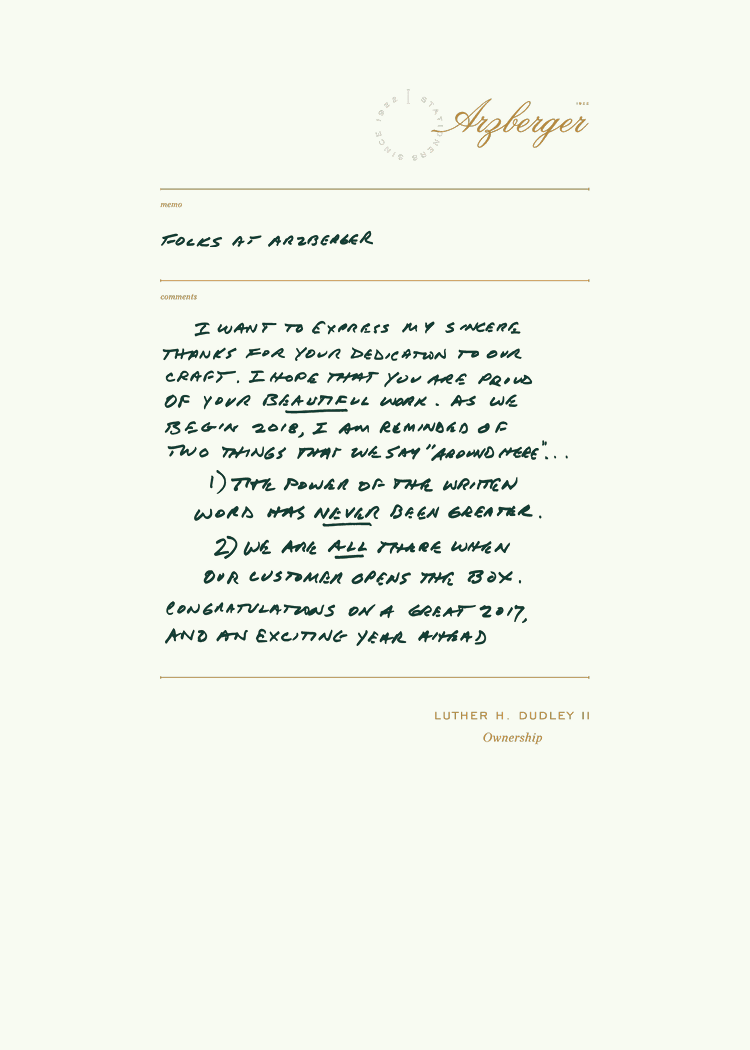 STATIONERS SINCE 1922
Arzberger
1922
memo
FOLKS AT ARZBERGER
comments
I WANT TO EXPRESS MY SINCERE
THANKS FOR YOUR DEDICATION TO OUR
CRAFT. I HOPE THAT YOU ARE PROUD
OF YOUR BEAUTIFUL WORK. AS WE
BEGIN 2018, I AM REMINDED OF
TWO THINGS THAT WE SAY "AROUND HERE"...
1) THE POWER OF THE WRITTEN
WORD HAS NEVER BEEN GREATER.
2) WE ARE ALL THERE WHEN
OUR CUSTOMER OPENS THE BOX.
CONGRATULATIONS ON A GREAT 2017,
AND AN EXCITING YEAR AHEAD
LUTHER H. DUDLEY II
Ownership